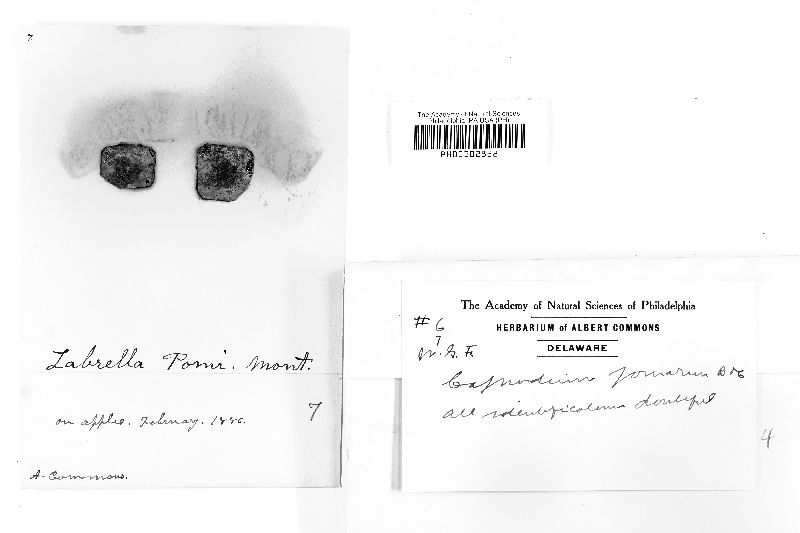 7
Labrella Pomi. Mont.
on apples. February. 1886.
7
A. Commons.
The Academy of Natural Sciences
Philadelphia, PA USA (PH)
The Academy of Natural Sciences of Philadelphia
HERBARIUM of ALBERT COMMONS
DELAWARE
# 6
7
Capnodium pomarum
all identifications doubtful
4